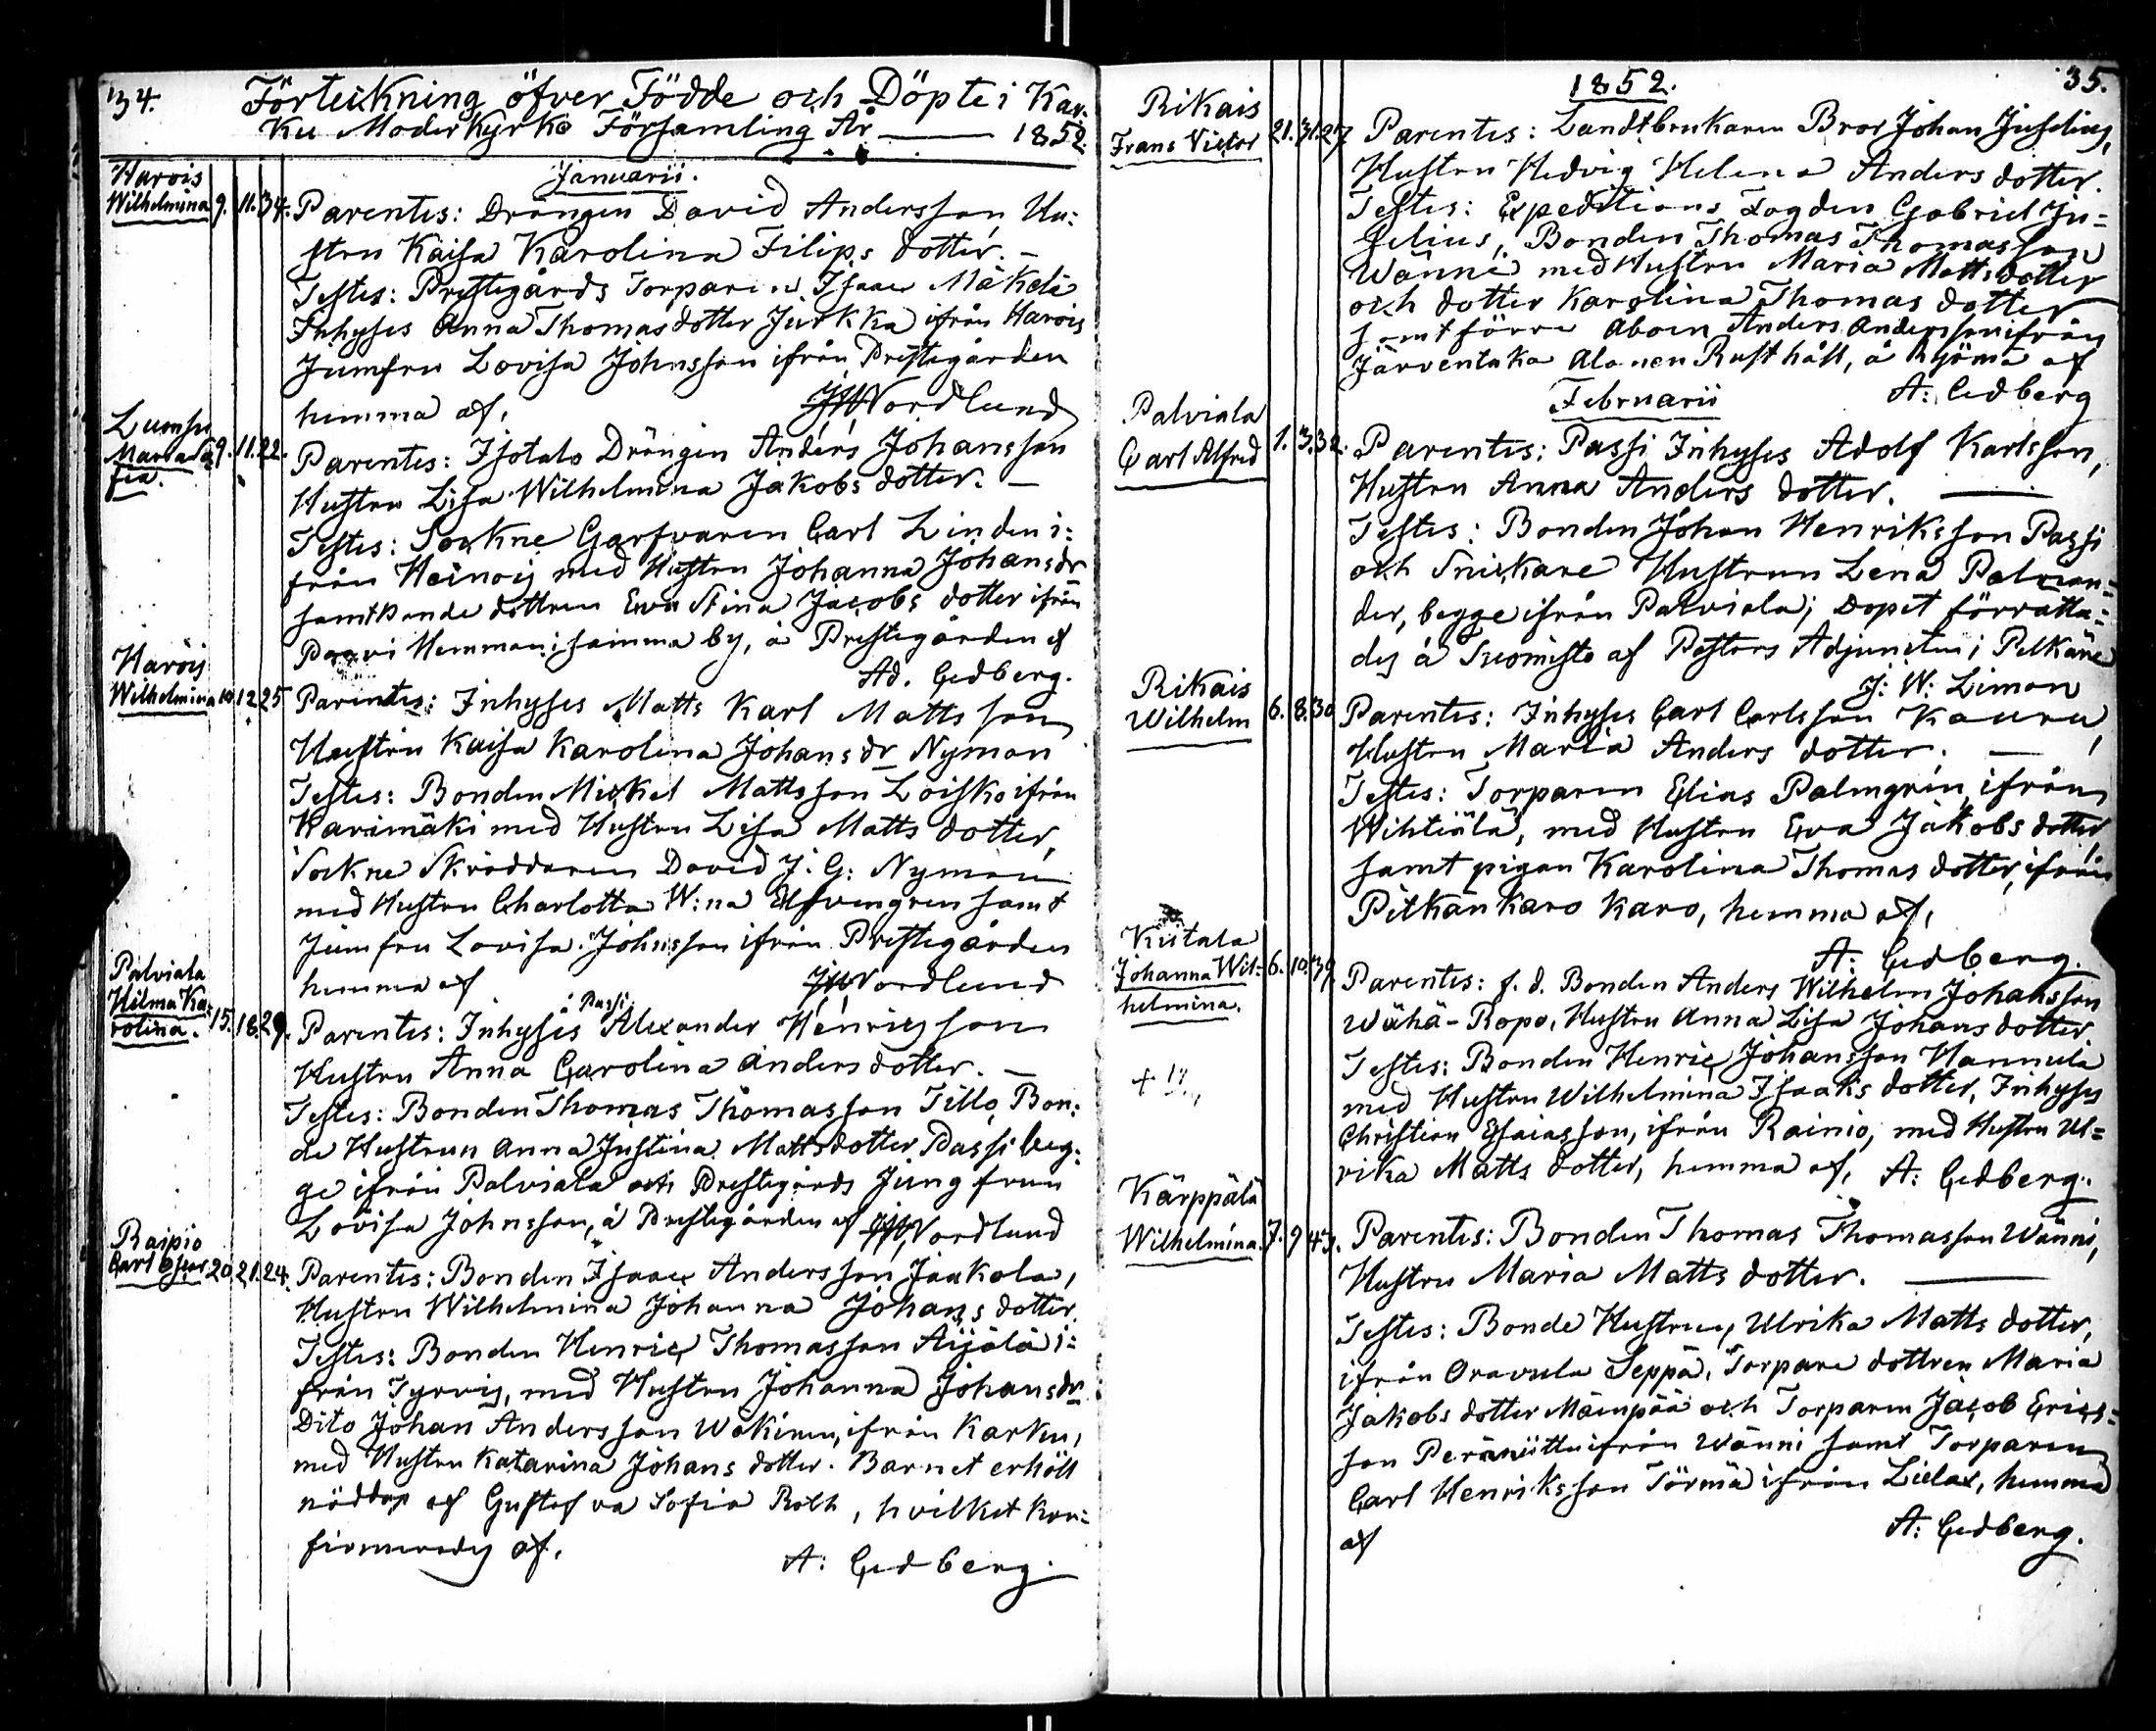 34.
Förteckning öfver Födde och Döpte i Kar-
ku Moderkyrko Församling År — 1852.
Januarii.
Harois
Wilhelmina 9. 11. 34. Parentes: Drängen David Andersson, Hu-
stru Kaisa Karolina Filips dotter. —
Testes: Prestegårds Torparen Isaac Mäkelä
Inhyses Anna Thomasdotter Jurkka ifrån Harois
Jumfru Lovisa Johnsson ifrån Prestegården
hemma af, JWNordlund
Lumsu
Maria So-
fia. 9. 11. 22. Parentes: Isotalo Drängen Anders Johansson
Hustru Lisa Wilhelmina Jakobs dotter. —
Testes: Sockne Garfvaren Carl Linden i-
från Heinois med Hustru Johanna Johansdr
samt Bonde dottren Ewa Stina Jacobs dotter ifrån
Paavi Hemman i samma by, å Prestegården af
Ad. Cedberg.
Harois
Wilhelmina 10. 12. 25 Parentes: Inhyses Matts Karl Mattsson
Hustru Kaisa Karolina Johansdr Nyman
Testes: Bonden Mickel Mattsson Loisko ifrån
Karimäki med Hustru Lisa Matts dotter,
Sockne Skräddaren David J. G: Nyman
med Hustru Charlotta W:na Elfvengren samt
Jumfru Lovisa Johnsson ifrån Prestegården
hemma af JWNordlund
Palviala
Hilma Ka-
rolina. 15. 18. 29. Parentes: Inhyses Passi Alexander Henricsson
Hustru Anna Carolina Anders dotter. —
Testes: Bonden Thomas Thomasson Tillo, Bon-
de Hustrun Anna Justina Mattsdotter Passi beg-
ge ifrån Palviala och Prestegårds Jungfrun
Lovisa Johnsson, å Prestegården af JWNordlund
Raipio
Carl Oscar 20. 21. 24. Parentes: Bonden Isaac Andersson Jaakola,
Hustru Wilhelmina Johanna Johans dotter.
Testes: Bonden Henric Thomasson Äijälä i-
från Tyrvis, med Hustru Johanna Johansdr
Dito Johan Andersson Wäkinen, ifrån Karku,
med Hustru Katarina Johans dotter. Barnet erhöll
nöddop af Gustafva Sofia Roth, hvilket kon-
firmerades af, A: Cedberg
1852. 35.
Rikais
Frans Victor 21. 31. 27. Parentes: Landtbrukaren Bror Johan Juselius,
Hustru Hedvig Helena Anders dotter.
Testes: Expeditions Fogden Gabriel Ju-
selius, Bonden Thomas Thomasson
Wänni med Hustru Maria Mattsdotter
och dotter Karolina Thomas dotter
samt förre Åboen Anders Andersson ifrån
Järventaka Alanen Rusthåll, å Kjömä af
A: Cedberg
Februarii
Palviala
Carl Alfred 1. 3. 32. Parentes: Passi Inhyses Adolf Karlsson,
Hustru Anna Anders dotter. —
Testes: Bonden Johan Henriksson Passi
och Snickare Hustrun Lena Palman-
der, begge ifrån Palviala; Dopet förratta-
des å Suomisto af Pastors Adjuncten i Pelkäne
J: W: Limon
Rikais
Wilhelm 6. 8. 30. Parentes: Inhyses Carl Carlsson Kauru,
Hustru Maria Anders dotter. —
Testes: Torparen Elias Palmgrén, ifrån
Wihtiälä, med Hustru Eva Jakobs dotter,
samt pigan Karolina Thomas dotter, ifrån
Pitkänkaro Karo, hemma af,
A: Cedberg.
Kutala
Johanna Wil-
helmina. 6. 10. 39. Parentes: f. d. Bonden Anders Wilhelm Johansson
Wähä-Ropo, Hustru Anna Lisa Johans dotter
Testes: Bonden Henric Johansson Hannula
med Hustru Wilhelmina Isaaks dotter, Inhyses
Christian Esaiasson, ifrån Rainio, med Hustru Ul-
rika Matts dotter, hemma af, A: Cedberg.
Kärppälä
Wilhelmina. 7. 9 43. Parentes: Bonden Thomas Thomasson Wänni,
Hustru Maria Matts dotter. —
Testes: Bonde Hustrun Ulrika Matts dotter,
ifrån Oravula Seppä, Torpare dottren Maria
Jakobs dotter Mäenpää och Torparen Jacob Erics-
son Peräniittu ifrån Wänni samt Torparen
Carl Henriksson Törmä ifrån Lielax, hemma
af A: Cedberg.